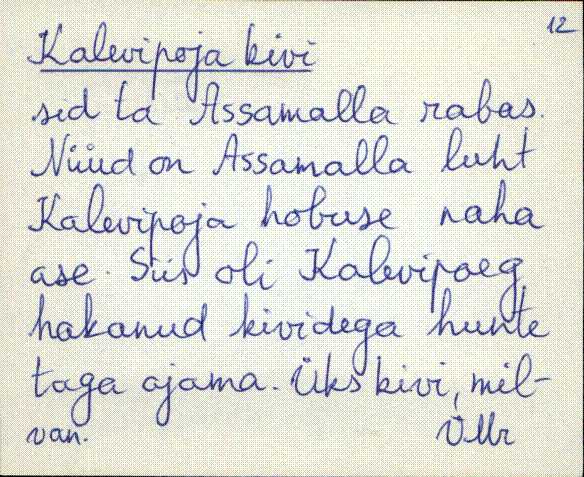 12
Kalevipoja kivi
sid ta Assamalla rabas.
Nüüd on Assamalla luht
Kalevipoja hobuse naha
ase. Siis oli Kalevipoeg
hakanud kividega hunte
taga ajama. Üks kivi, mil-
van.